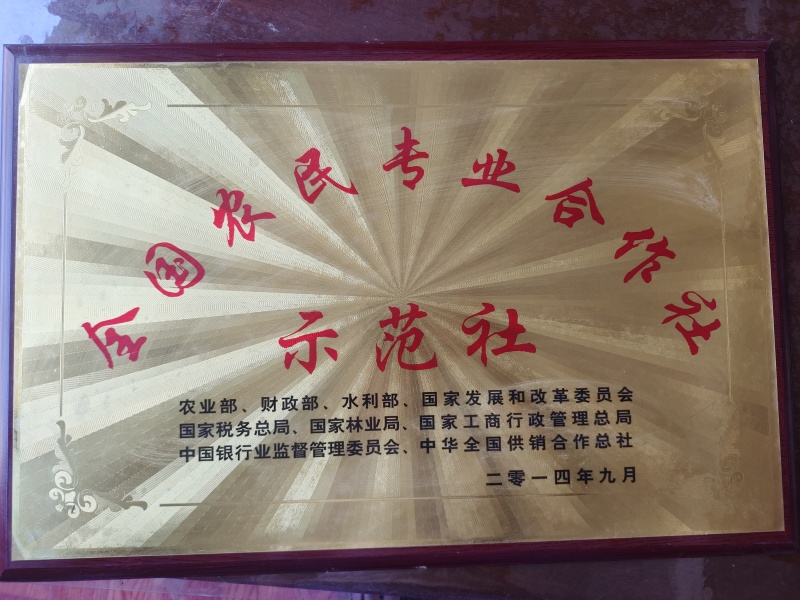 全国农民专业合作社
示范社
农业部、财政部、水利部、国家发展和改革委员会
国家税务总局、国家林业局、国家工商行政管理总局
中国银行业监督管理委员会、中华全国供销合作总社
二零一四年九月